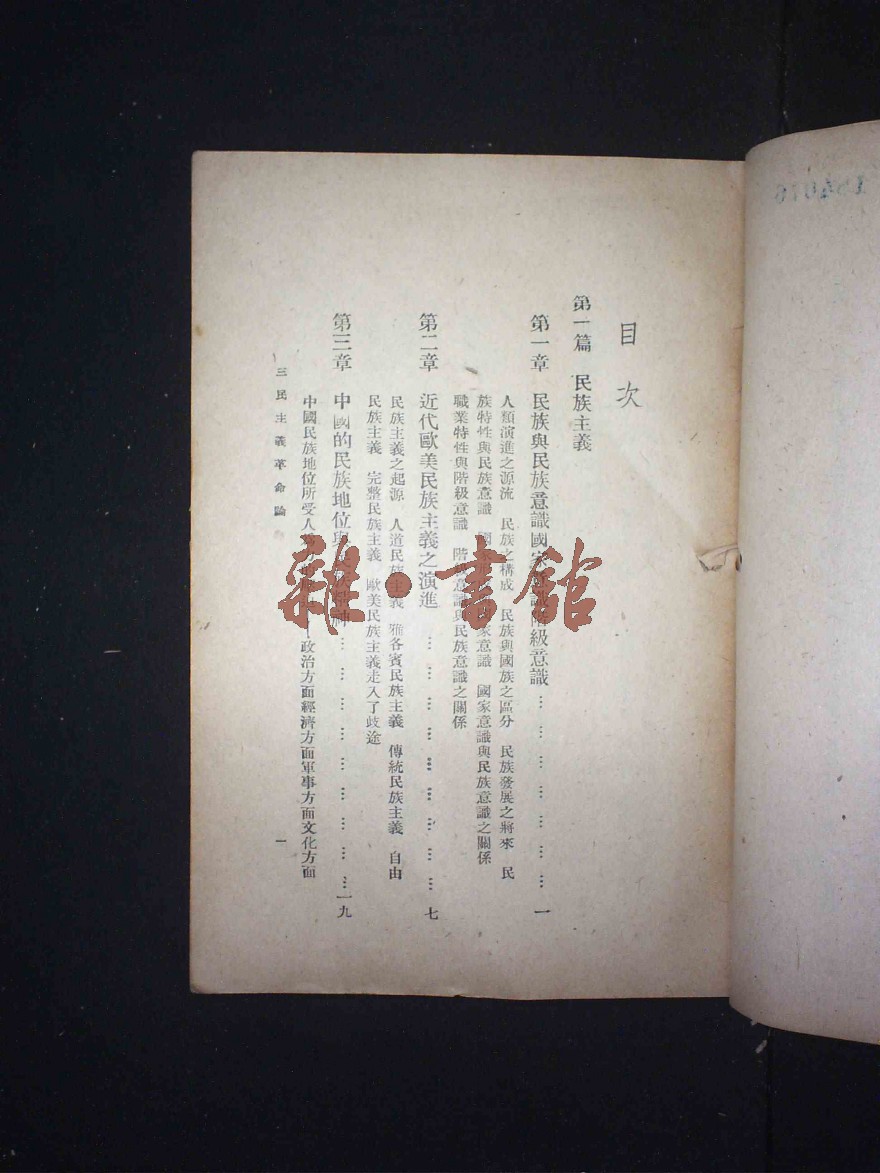 目次
第一篇 民族主義
第一章 民族與民族意識國家意識階級意識………………………………一
人類演進之源流 民族之構成 民族與國族之區分 民族發展之將來 民
族特性與民族意識 國家意識 國家意識與民族意識之關係
職業特性與階級意識 階級意識與民族意識之關係
第二章 近代歐美民族主義之演進………………………………七
民族主義之起源 人道民族主義 雅各賓民族主義 傳統民族主義 自由
民族主義 完整民族主義 歐美民族主義走入了歧途
第三章 中國的民族地位與民族精神………………………………一九
中國民族地位所受人 政治方面經濟方面軍事方面文化方面
三民主義革命論
一
雜·書館
184016